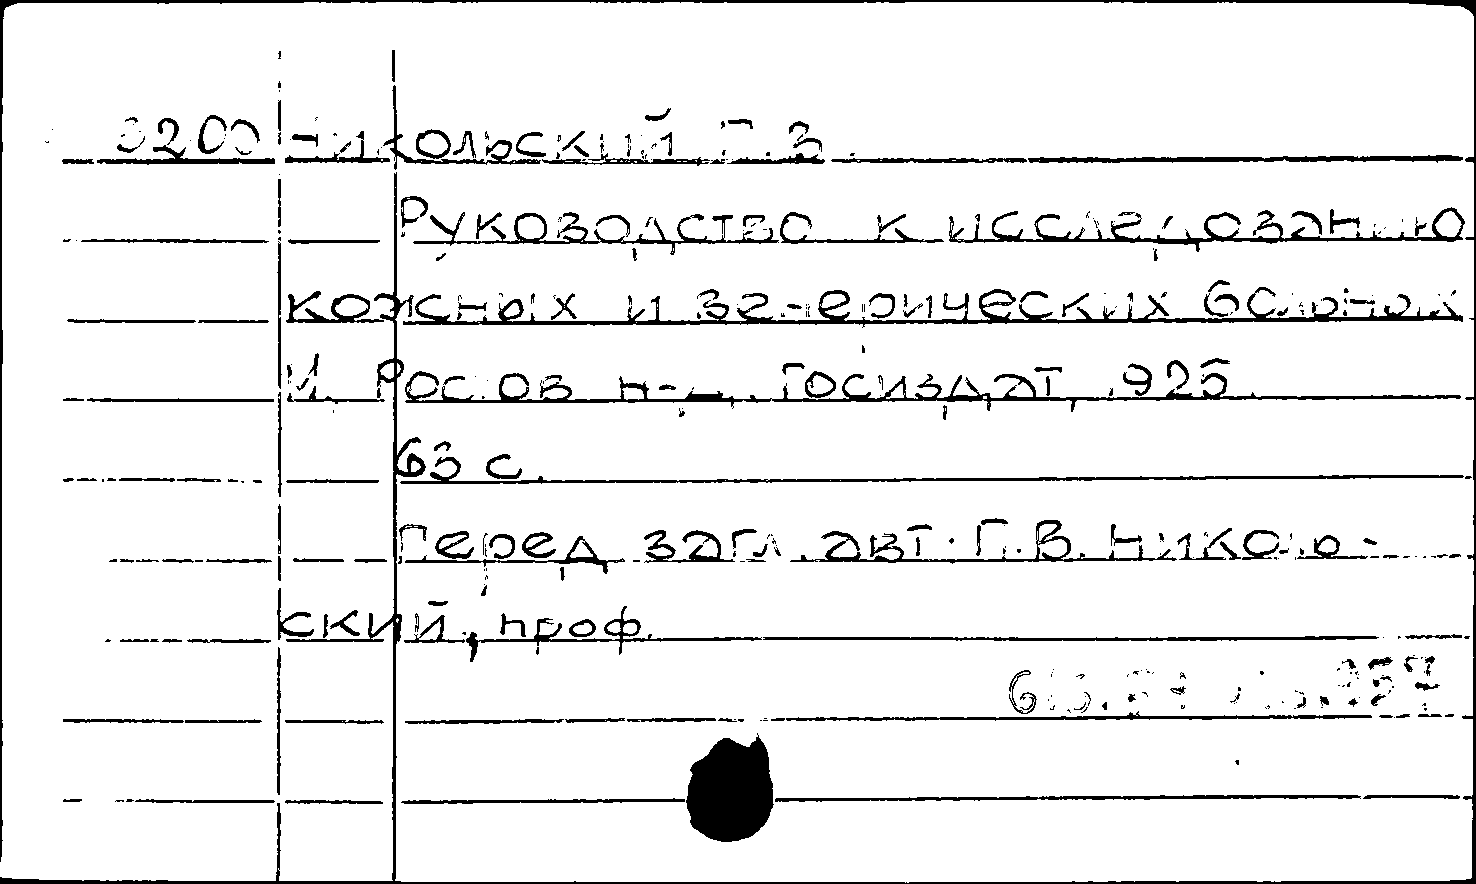 Никольский Г.В.
Руководство к исследованию
кожных и венерических больных
И. Ростов н-Д. Госиздат, 1925.
63 с.
Перед загл. авт. Г.В. Николь-
ский, проф.